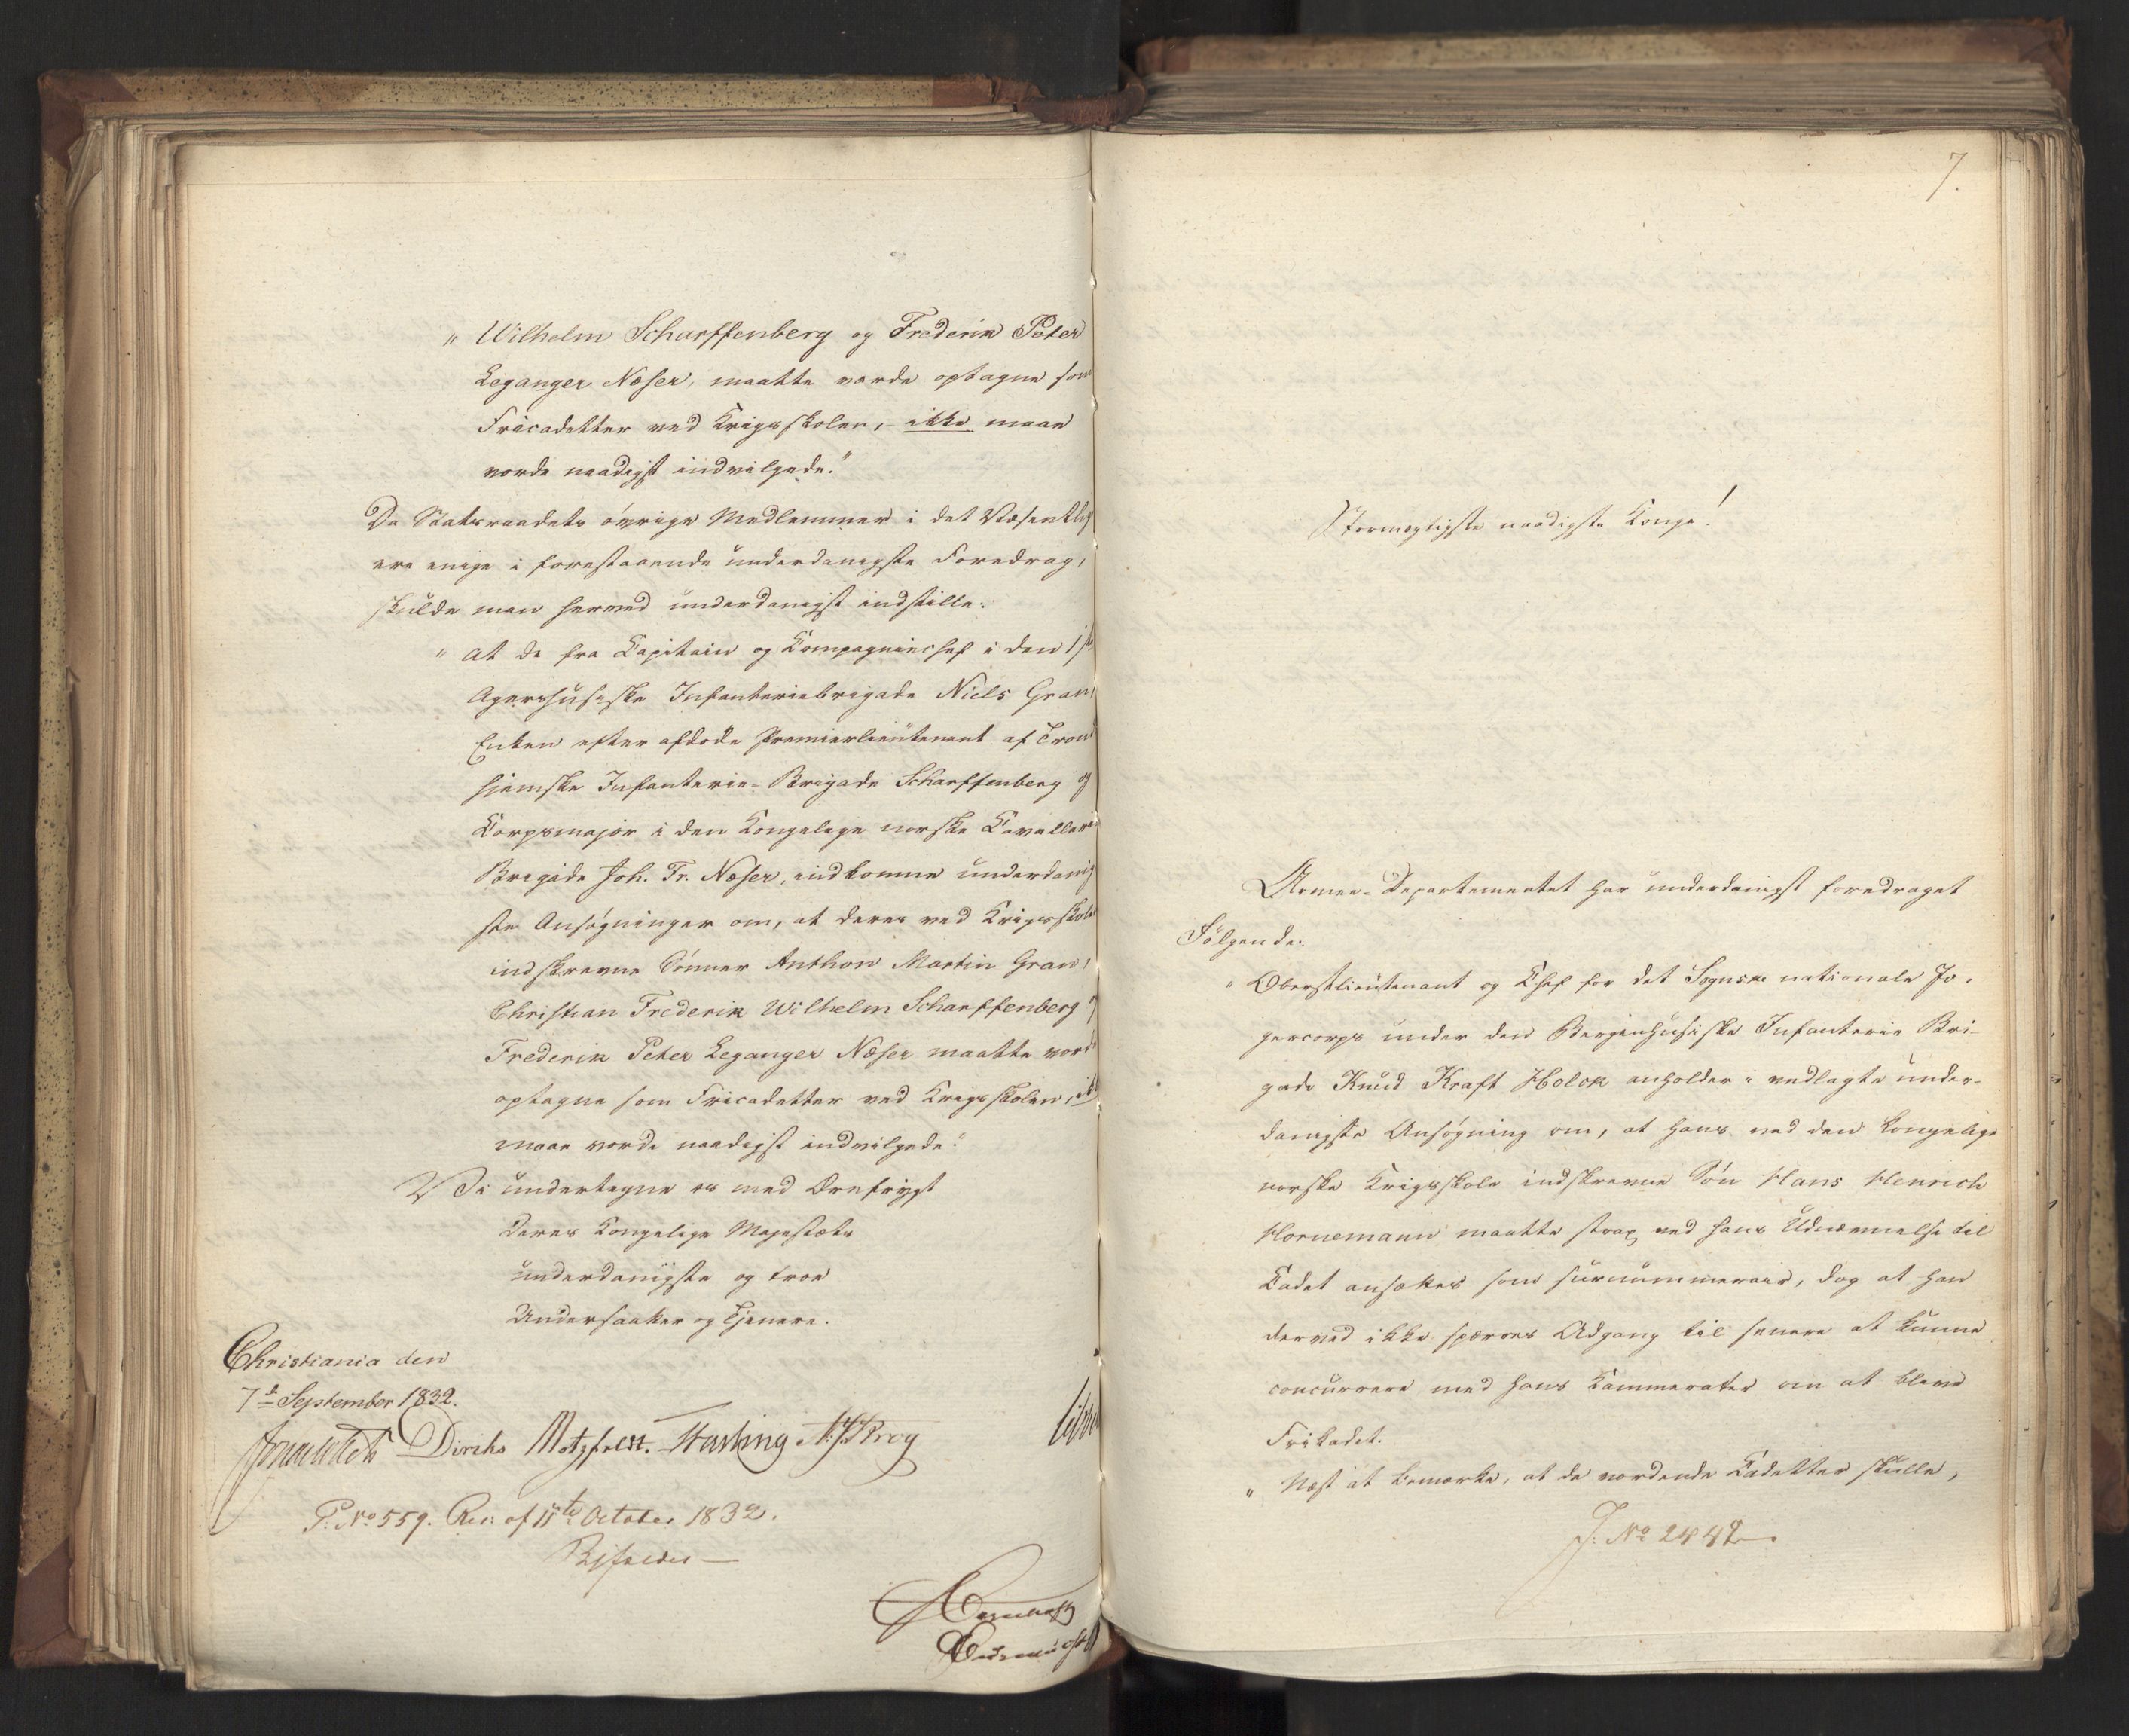 " Wilhelm Scharffenberg og Frederik Peter
Leganger Næser, maatte vorde optagne som
Fricadetter ved Krigsskolen, ikke maae
vorde naadigst indvilgede."
Da Statsraadets øvrige Medlemmer i det Væsentlig
ere enige i forestaaende underdanigste Foredrag,
skulde man herved underdanigst indstille:
" at de fra Capitain og Compagniechef i den 1ste
Agershusiske Infanteriebrigade Niels Gran,
Enken efter afdøde Premierlieutenant af Trond
hjemske Infanterie-Brigade Scharffenberg og
Corpsmajor i den Kongelige norske Cavallerie
Brigade Joh. Fr. Næser, indkomne underdanig
ste Ansøgninger om, at deres ved Krigsskolen
indskrevne Sønner Anthon Martin Gran,
Christian Frederik Wilhelm Scharffenberg og
Frederik Peter Leganger Næser maatte vorde
optagne som Fricadetter ved Krigsskolen, ikke
maae vorde naadigst indvilgede."
Vi undertegne os med Ærefrygt
Deres Kongelige Majestæts
underdanigste og troe
Undersaatter og Tjenere.
Christiania den
7de September 1832.
Diriks Motzfeldt. Fasting Krog
P. No 559. Res: af 11te October 1832.
7.
Stormægtigste naadigste Konge!
Armee-Departementet har underdanigst foredraget
Følgende:
" Oberstlieutenant og Chef for det Sognske nationale Jæ-
gercorps under den Bergenhusiske Infanterie Bri-
gade Knud Kraft Holck anholder i vedlagte under-
danigste Ansøgning om, at hans ved den Kongelige
norske Krigsskole indskrevne Søn Hans Henrich
Hornemann maatte strax ved hans Udnævnelse til
Cadet ansættes som surnummerair, dog at han
derved ikke spærres Adgang til senere at kunne
concurrere med hans Kammerater om at blive
Frikadet.
" Næst at bemærke, at de vordende Cadetter skulle,
J. No 2442.